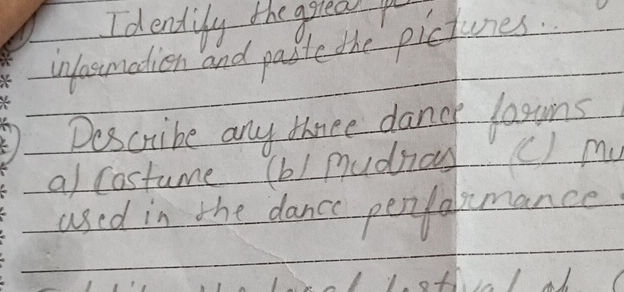 Identify the great
information and paste the pictures..
Describe any three dance forms
a) Costume (b) Mudras (c) Mu
used in the dance performance.